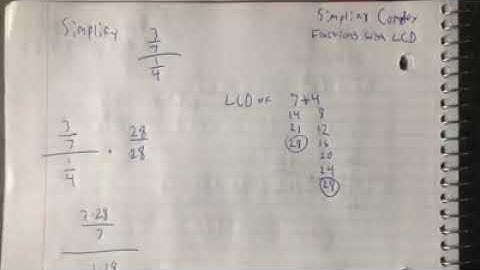 Simplify
3/7
1/4
Simplify Complex
Fractions with LCD
LCD of 7 + 4
14 8
21 12
28 16
20
24
28
3/7
1/4
· 28/28
7·28
7
1·28